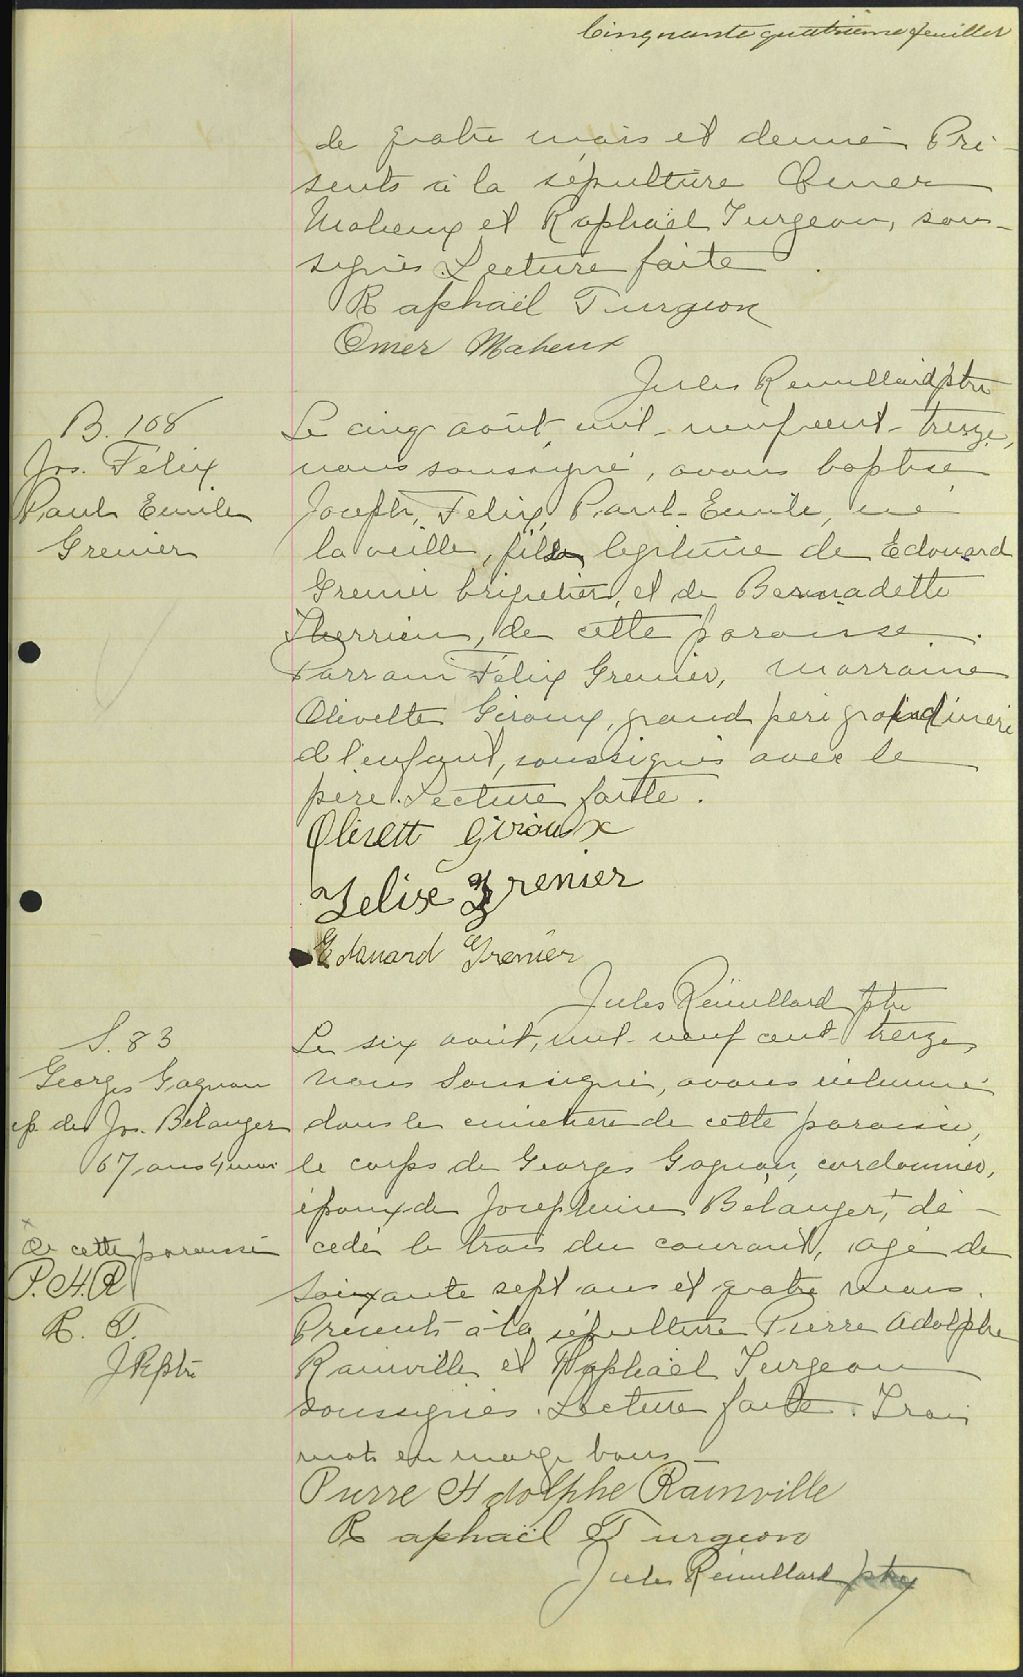 Cinquante quatrième feuillet
de quatre mois et demie Pré-
sents à la sépulture Omer
Maheux et Raphaël Turgeon, sous-
signés. Lecture faite.
Raphaël Turgeon
Omer Maheux
Jules Rémillard ptre
B. 108
Jos. Félix
Paul Emile
Grenier
Le cinq août mil-neuf cent-treize,
nous soussigné, avons baptisé
Joseph, Félix, Paul-Emile, né
la veille, fils légitime de Edouard
Grenier briquetier, et de Bernadette
Therrien, de cette paroisse.
Parrain Félix Grenier, marraine
Olivette Giroux, grand père grand mère
de l'enfant, soussignés avec le
père. Lecture faite.
Olivett Giroux
Felixe Grenier
Edouard Grenier
Jules Rémillard ptre
S. 83
Georges Gagnon
ép. de Jos. Bélanger
67 ans 4 mois
Le six août, mil-neuf cent-treize,
nous soussigné, avons inhumé
dans le cimetière de cette paroisse,
le corps de Georges Gagnon, cordonnier,
époux de Josephine Bélanger,+ dé-
cédé le trois du courant, agé de
soixante sept ans et quatre mois.
Présents à la sépulture Pierre Adolphe
Rainville et Raphaël Turgeon
soussignés. Lecture faite. Trois
mots en marge bons_
x
de cette paroisse
P.A.R
R. T.
J R ptre
Pierre Adolphe Rainville
Raphaël Turgeon
Jules Rémillard ptre